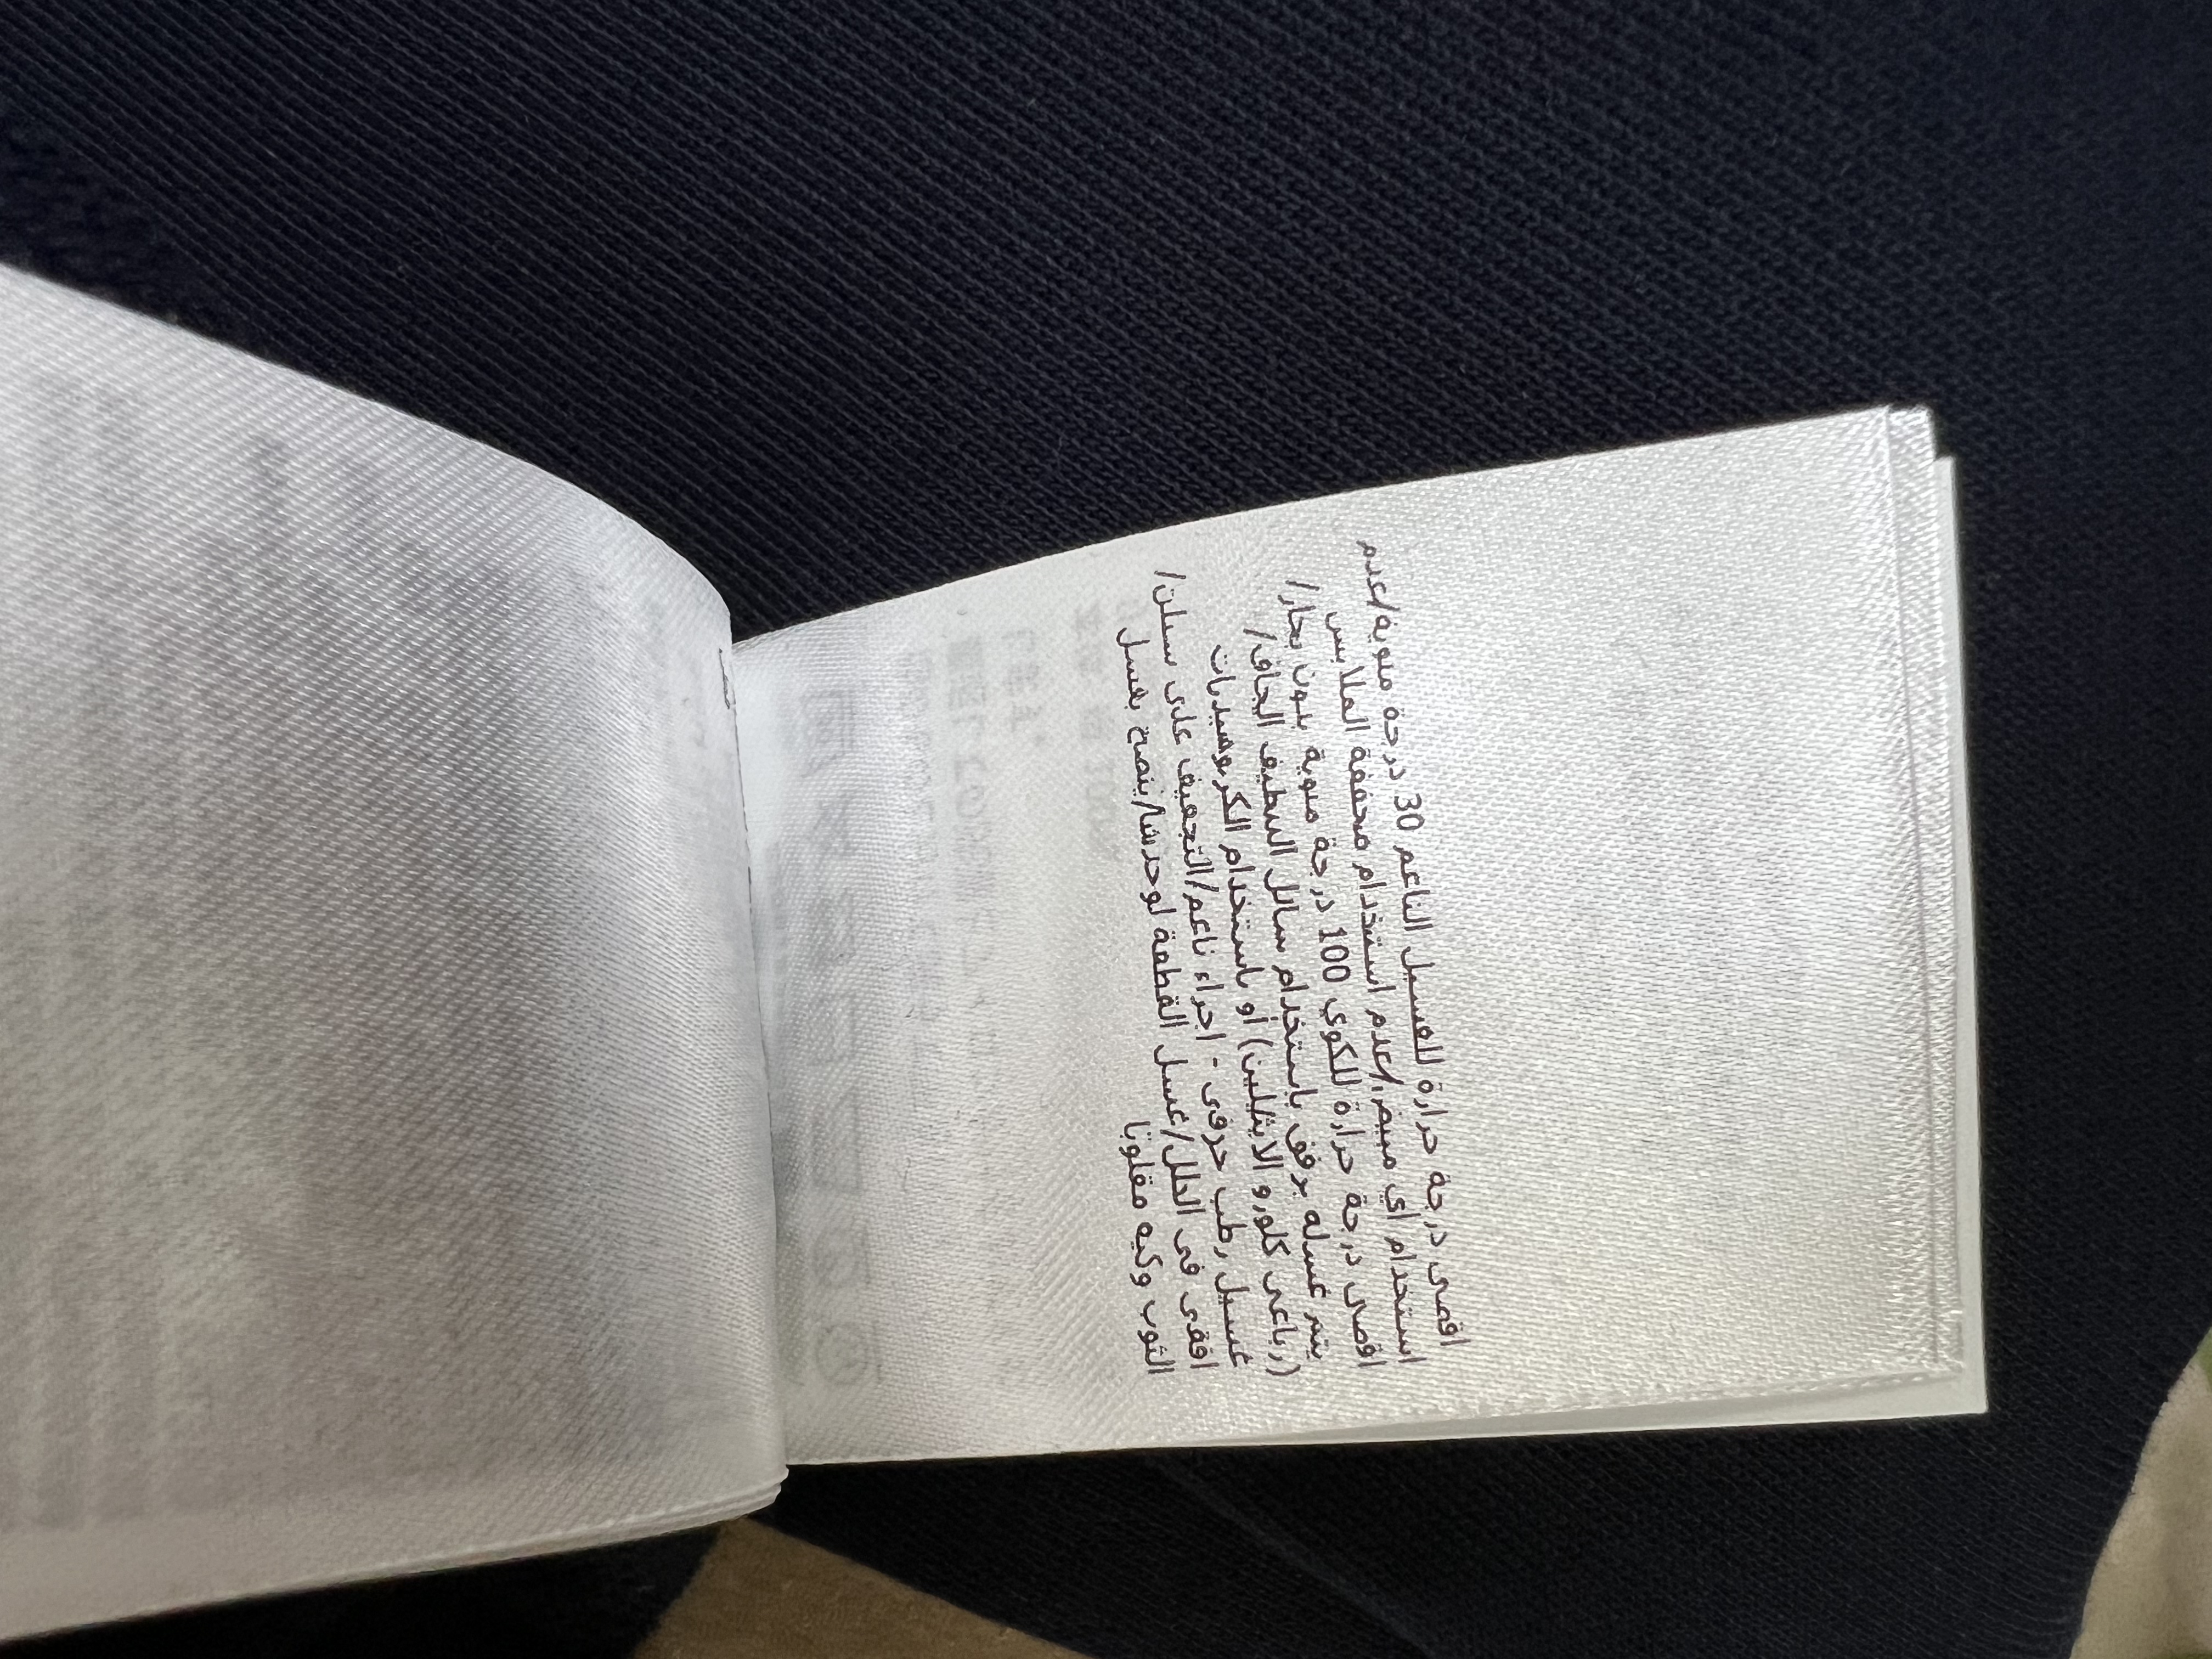 اقصى درجة حرارة للغسيل الناعم 30 درجة مئوية/عدم
استخدام اي مبيض/عدم استخدام مجففة الملابس
اقصى درجة حرارة للكوي 100 درجة مئوية بدون بخار/
يتم غسله برفق باستخدام سائل التنظيف الجاف/
(رباعي كلورو الايثيلين) او باستخدام الكربوهيدرات
غسيل رطب حرفي - اجراء ناعم/التجفيف على
افقي في الظل/غسل القطعة لوحدها/ينصح بغسل
الثوب وكيه مقلوبا